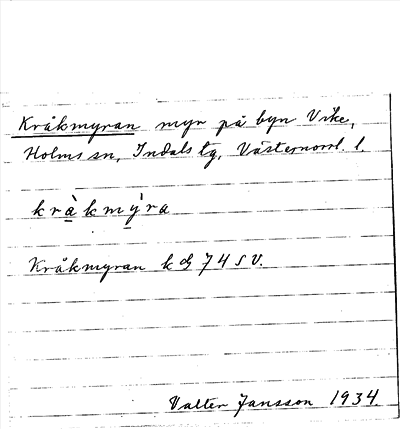 Kråkmyran myr på byn Vike,
Holms sn, Indals tg, Västernorrl. l.
kràkmýra
Kråkmyran k bl 74 SV.
Valter Jansson 1934.